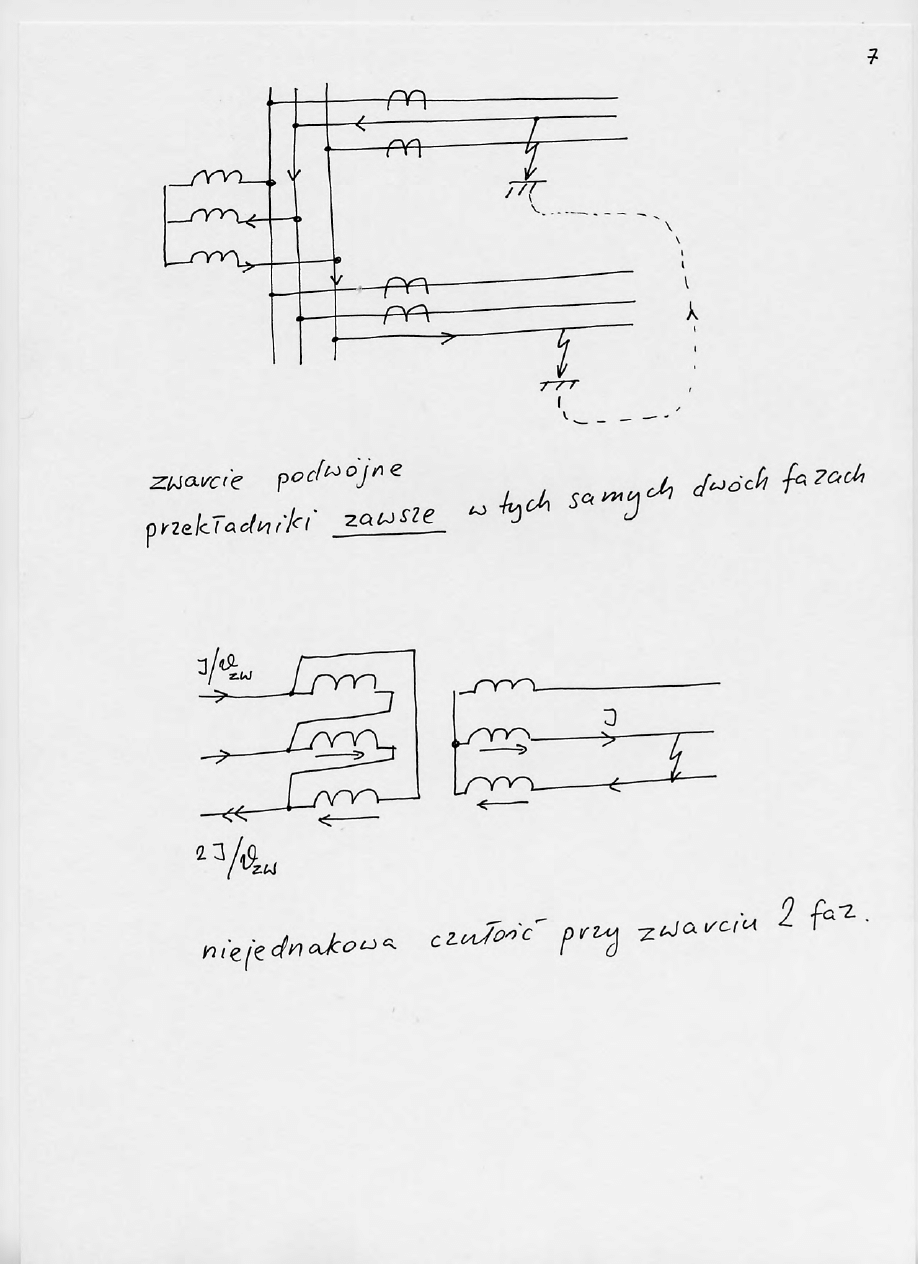 7
zwarcie podwójne
przekładniki zawsze w tych samych dwóch fazach
J/ϑzw
J
2J/ϑzw
niejednakowa czułość przy zwarciu 2 faz.